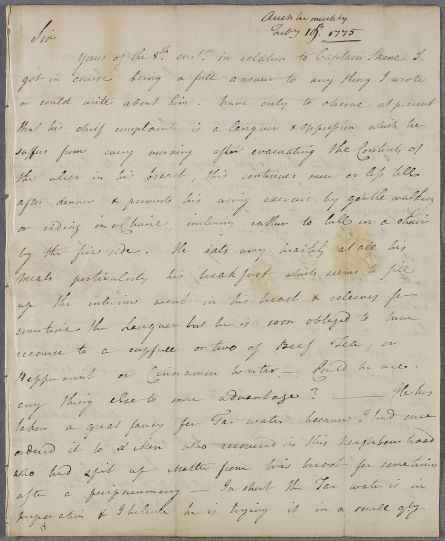 Auchtermuchty
Feby 19th 1775
Sir
Yours of the 8th curt. in relation to Captain Skene I
got in course being a full answer to any thing I wrote
or could write about him. have only to observe at present
that his chief complaint is a languor & oppression which he
suffers from every morning after evacuating the Contents of
the ulcer in his breast, this continues more or less till
after dinner & prevents his using exercise by gentle walking
or riding in a Chaise inclining rather to loll in a chair
by the fire side. He eats very heartily at all his
meals particularly his breakfast which seems to fill
up the interim want in his breast & relieves for
sometime the Languor but he is soon obliged to have
recourse to a cupfull or two of Beef Tea, or
Peppermint or Cinnamon water — Could he use
any thing else to more advantage? — He has
taken a great fancy for Tar water because I had once
ordered it to a man who recovered in this neighbourhood
who had spit up Matter from his breast for sometime
after a peripneumony — In short the Tar water is in
preparation & I believe he is trying it in a small qty